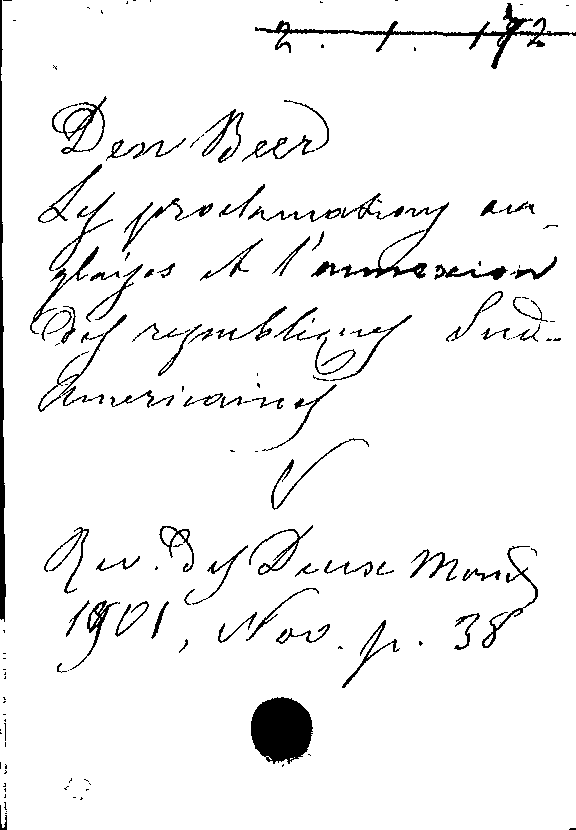 2. 1. 172
Den Beer
Les proclamations an-
glaises et l'annexion
des republiques Sud-
Americaines
Rev. des Deux Mondes
1901, Nov. p. 38